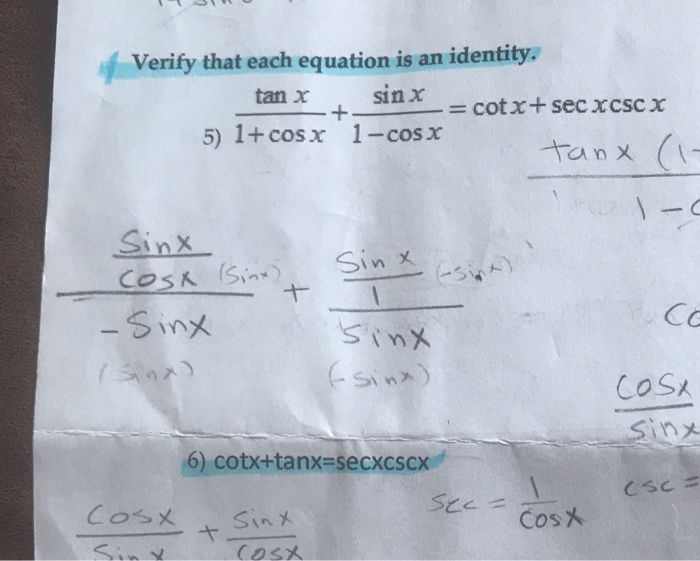 Verify that each equation is an identity.
5) tan x / 1+cos x + sin x / 1−cos x = cot x + sec x csc x
tanx (1-
1 -
Sinx / cosx (Sinx) / -Sinx (Sinx) + Sin x / 1 (-sinx) / Sinx (-Sinx)
Co
Cosx / sinx
6) cotx+tanx=secxcscx
Sec = 1 / Cosx
csc =
Cosx / Sinx + Sinx / Cosx